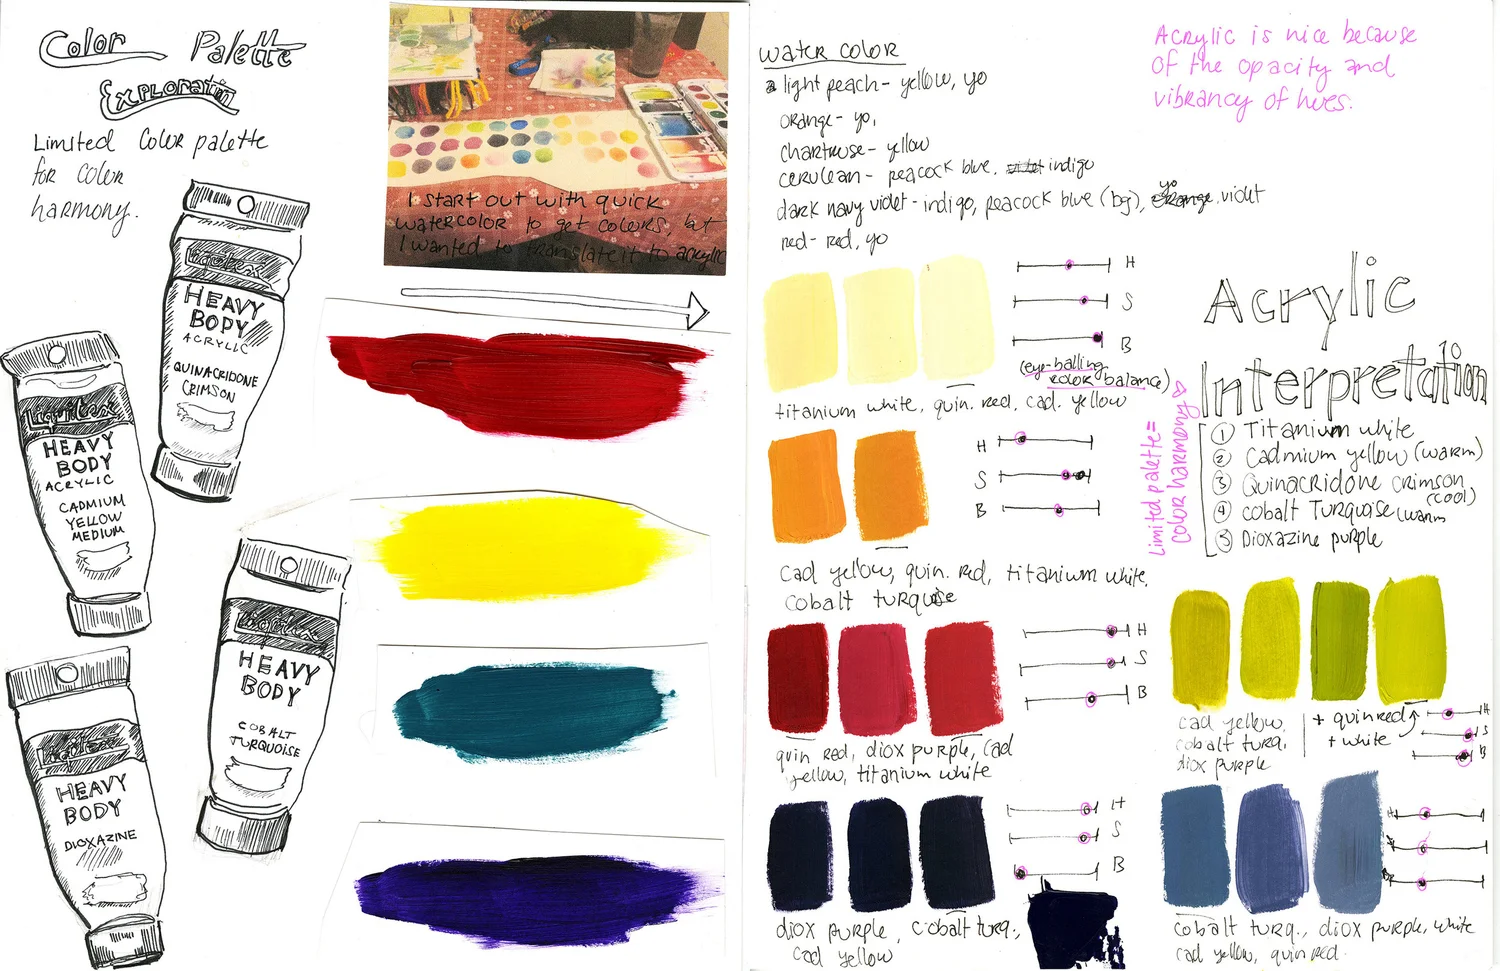 Color Palette
Exploratin
Limited Color palette
for color
harmony.
Liquitex
HEAVY
BODY
ACRYLIC
QUINACRIDONE
CRIMSON
Liquitex
HEAVY
BODY
ACRYLIC
CADMIUM
YELLOW
MEDIUM
Liquitex
HEAVY
BODY
COBALT
TURQUOISE
Liquitex
HEAVY
BODY
DIOXAZINE
I start out with quick
watercolor to get colours, but
I wanted to translate it to acrylic
water color
light peach - yellow, yo
orange - yo,
chartruse - yellow
cerulean - peacock blue, indigo
dark navy violet - indigo, peacock blue (bg), yo violet
red - red, yo
H
S
B
(eye-balling
color balance)
titanium white, quin. red, cad. yellow
H
S
B
cad yellow, quin. red, titanium white,
cobalt turquoise
H
S
B
quin red, diox purple, cad
yellow, titanium white
H
S
B
diox purple, cobalt turq.,
cad yellow
Acrylic is nice because
of the opacity and
vibrancy of hues.
Acrylic
Interpretation
Limited palette =
color harmony
① Titanium white
② Cadmium yellow (warm)
③ Quinacridone crimson
(cool)
④ cobalt Turquoise (warm
⑤ Dioxazine purple
cad yellow,
cobalt turq.
diox purple
+ quin red
+ white
H
S
B
H
cobalt turq., diox purple, white
cad yellow, quin red.